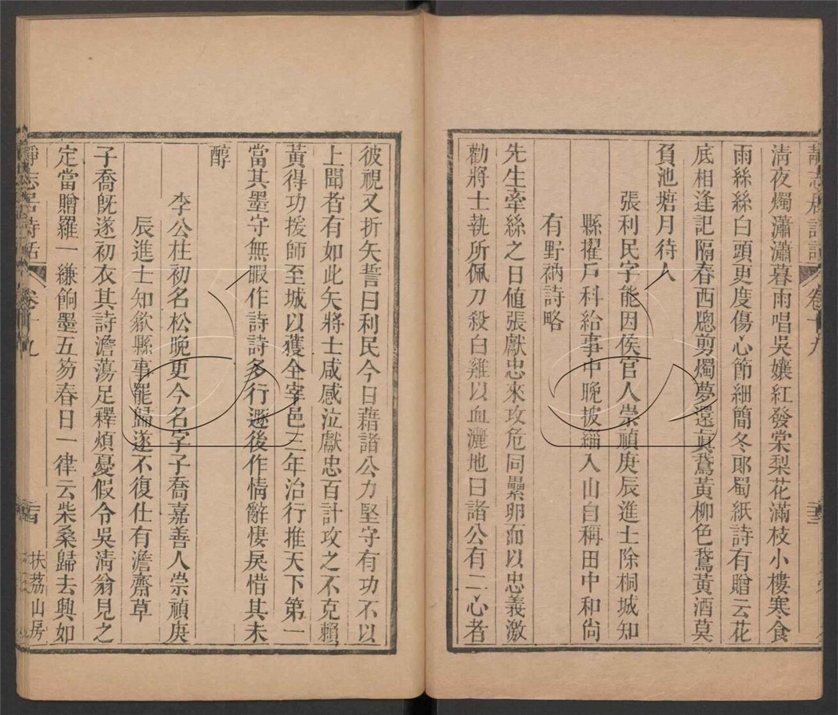 清夜燭瀟瀟暮雨唱吳孃紅發棠梨花滿枝小樓寒食
雨絲絲白頭更度傷心節細簡冬郎蜀紙詩有贈云花
底相逢記隔春西牕剪燭夢還眞鵞黃柳色鵞黃酒莫
負池塘月待人
張利民字能因侯官人崇禎庚辰進士除桐城知
縣擢戶科給事中晚披緇入山自稱田中和尙
有野衲詩略
先生牽絲之日値張獻忠來攻危同纍卵而以忠義激
勸將士執所佩刀殺白雞以血灑地曰諸公有二心者
彼視又折矢誓曰利民今日藉諸公力堅守有功不以
上聞者有如此矢將士咸感泣獻忠百計攻之不克賴
黃得功援師至城以獲全宰邑三年治行推天下第一
當其墨守無暇作詩詩多行遯後作情辭悽戾惜其未
醇
李公柱初名松晚更今名字子喬嘉善人崇禎庚
辰進士知歙縣事罷歸遂不復仕有澹齋草
子喬旣遂初衣其詩澹蕩足釋煩憂假令吳淸翁見之
定當贈羅一縑餉墨五笏春日一律云柴桑歸去興如
靜志居詩話 卷十九 扶荔山房